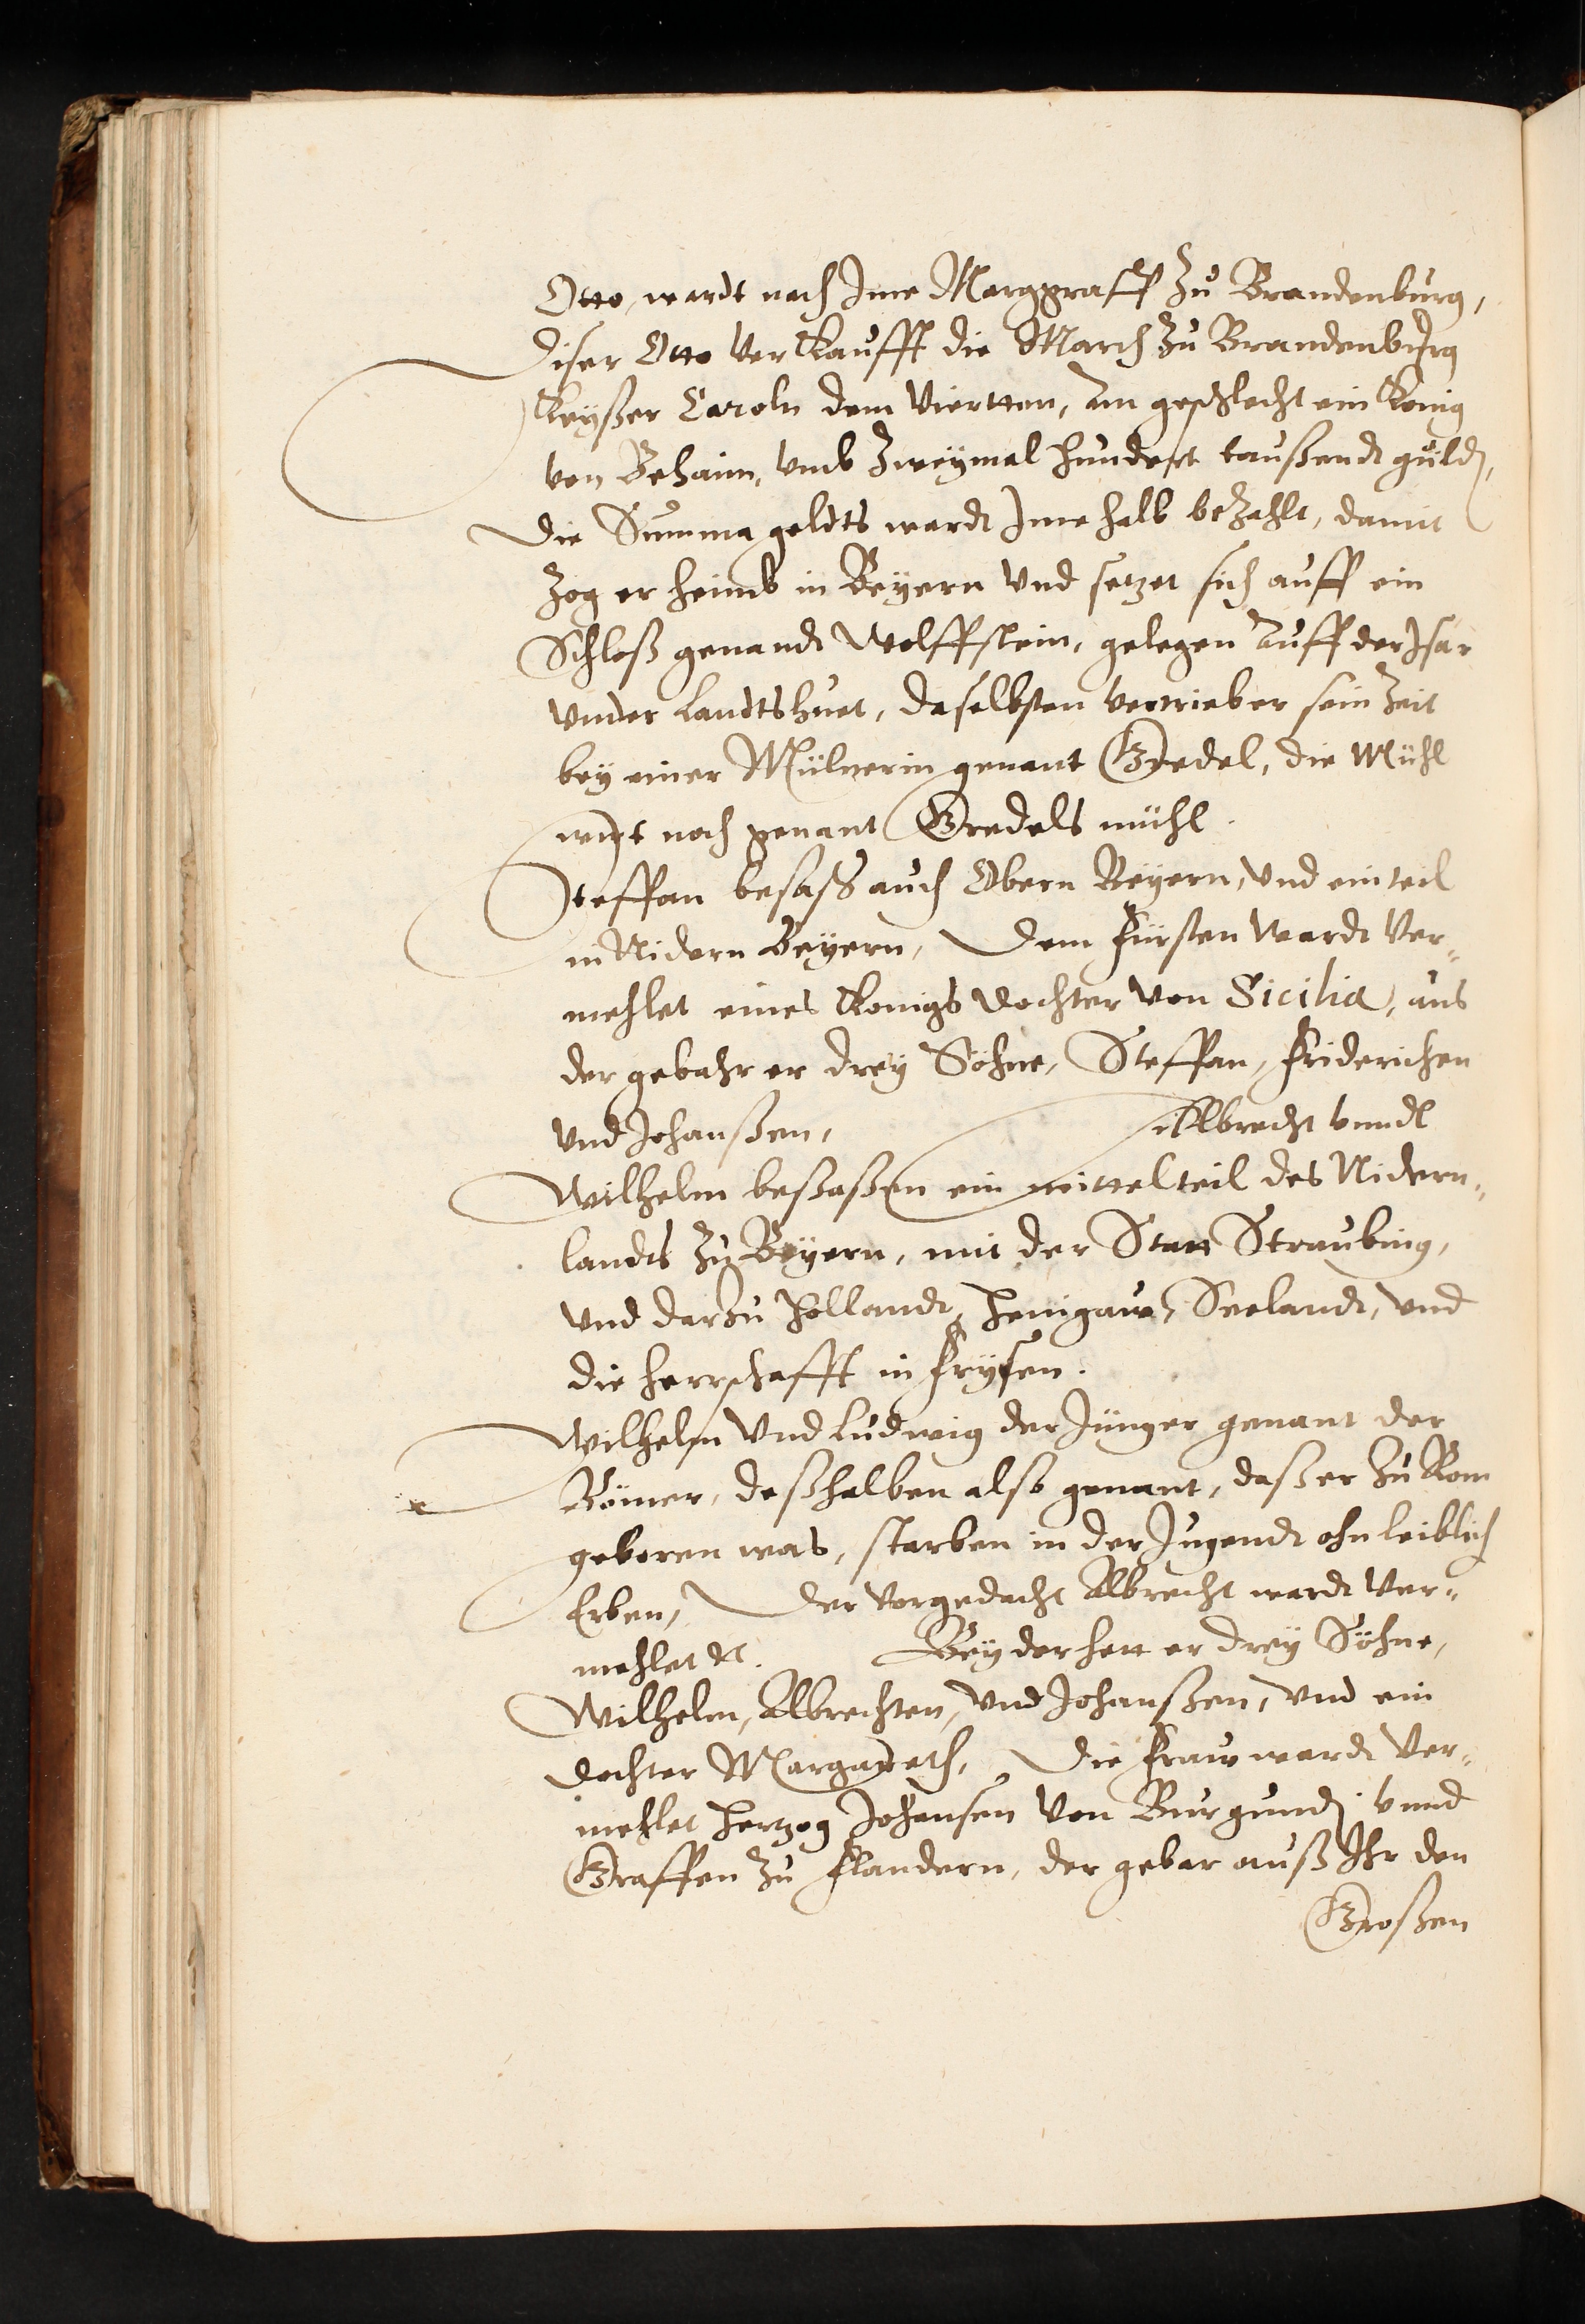 Otto, wardt nach Ime Marggraff zu Brandenburg,
Diser Otto verkaufft die March zu Brandenburg
Keyßer Caroln dem Viertten, am geschlecht ein König
von Behaim, vmb zweymal hundert taußendt guld,
Die Summa geldts wardt Ime halb bezahlt, damit
zog er heimb in Beyern vnd setzet sich auff ein
Schloß genandt Wolffstein, gelegen auff der Isar
vnder Landtshuet, daselbsten vertrieb er sein Zeit
bey einer Mülnerin genant Gredel, die Mühl
wirt noch genant Gredels mühl.
Steffan besaß auch Obern Beyern, vnd ein teil
in Nidern Beyern, Dem Fürsten wardt ver„
mehlet eines Konigs dochter von Sicilia, aus
der gebahr er drey Söhne, Steffan, Friderichen
vnd Johanßen, Albrecht vnndt
Wilhelm beßaßen ein mittel teil des Nidern„
landts zu Beyern, mit der Statt Straubing,
vnd darzu Hollandt, Henigaw, Seelandt, vnd
die herrschafft in Frysen.
Wilhelm vnd Ludwig der Jünger genant der
Römer, deßhalben also genant, daß er zu Rom
geboren was, starben in der Jugendt ohn leiblich
Erben, Der vorgedacht Albrecht wardt ver„
mehlet etc. Bey der hett er drey Söhne,
Wilhelm, Albrechten, vnd Johanßen, vnd ein
dochter Margareth, Die Fraw wardt ver„
mehlet Hertzog Johansen von Burgundi vnnd
Graffen zu Flandern, der gebar auß Ihr den
Großen